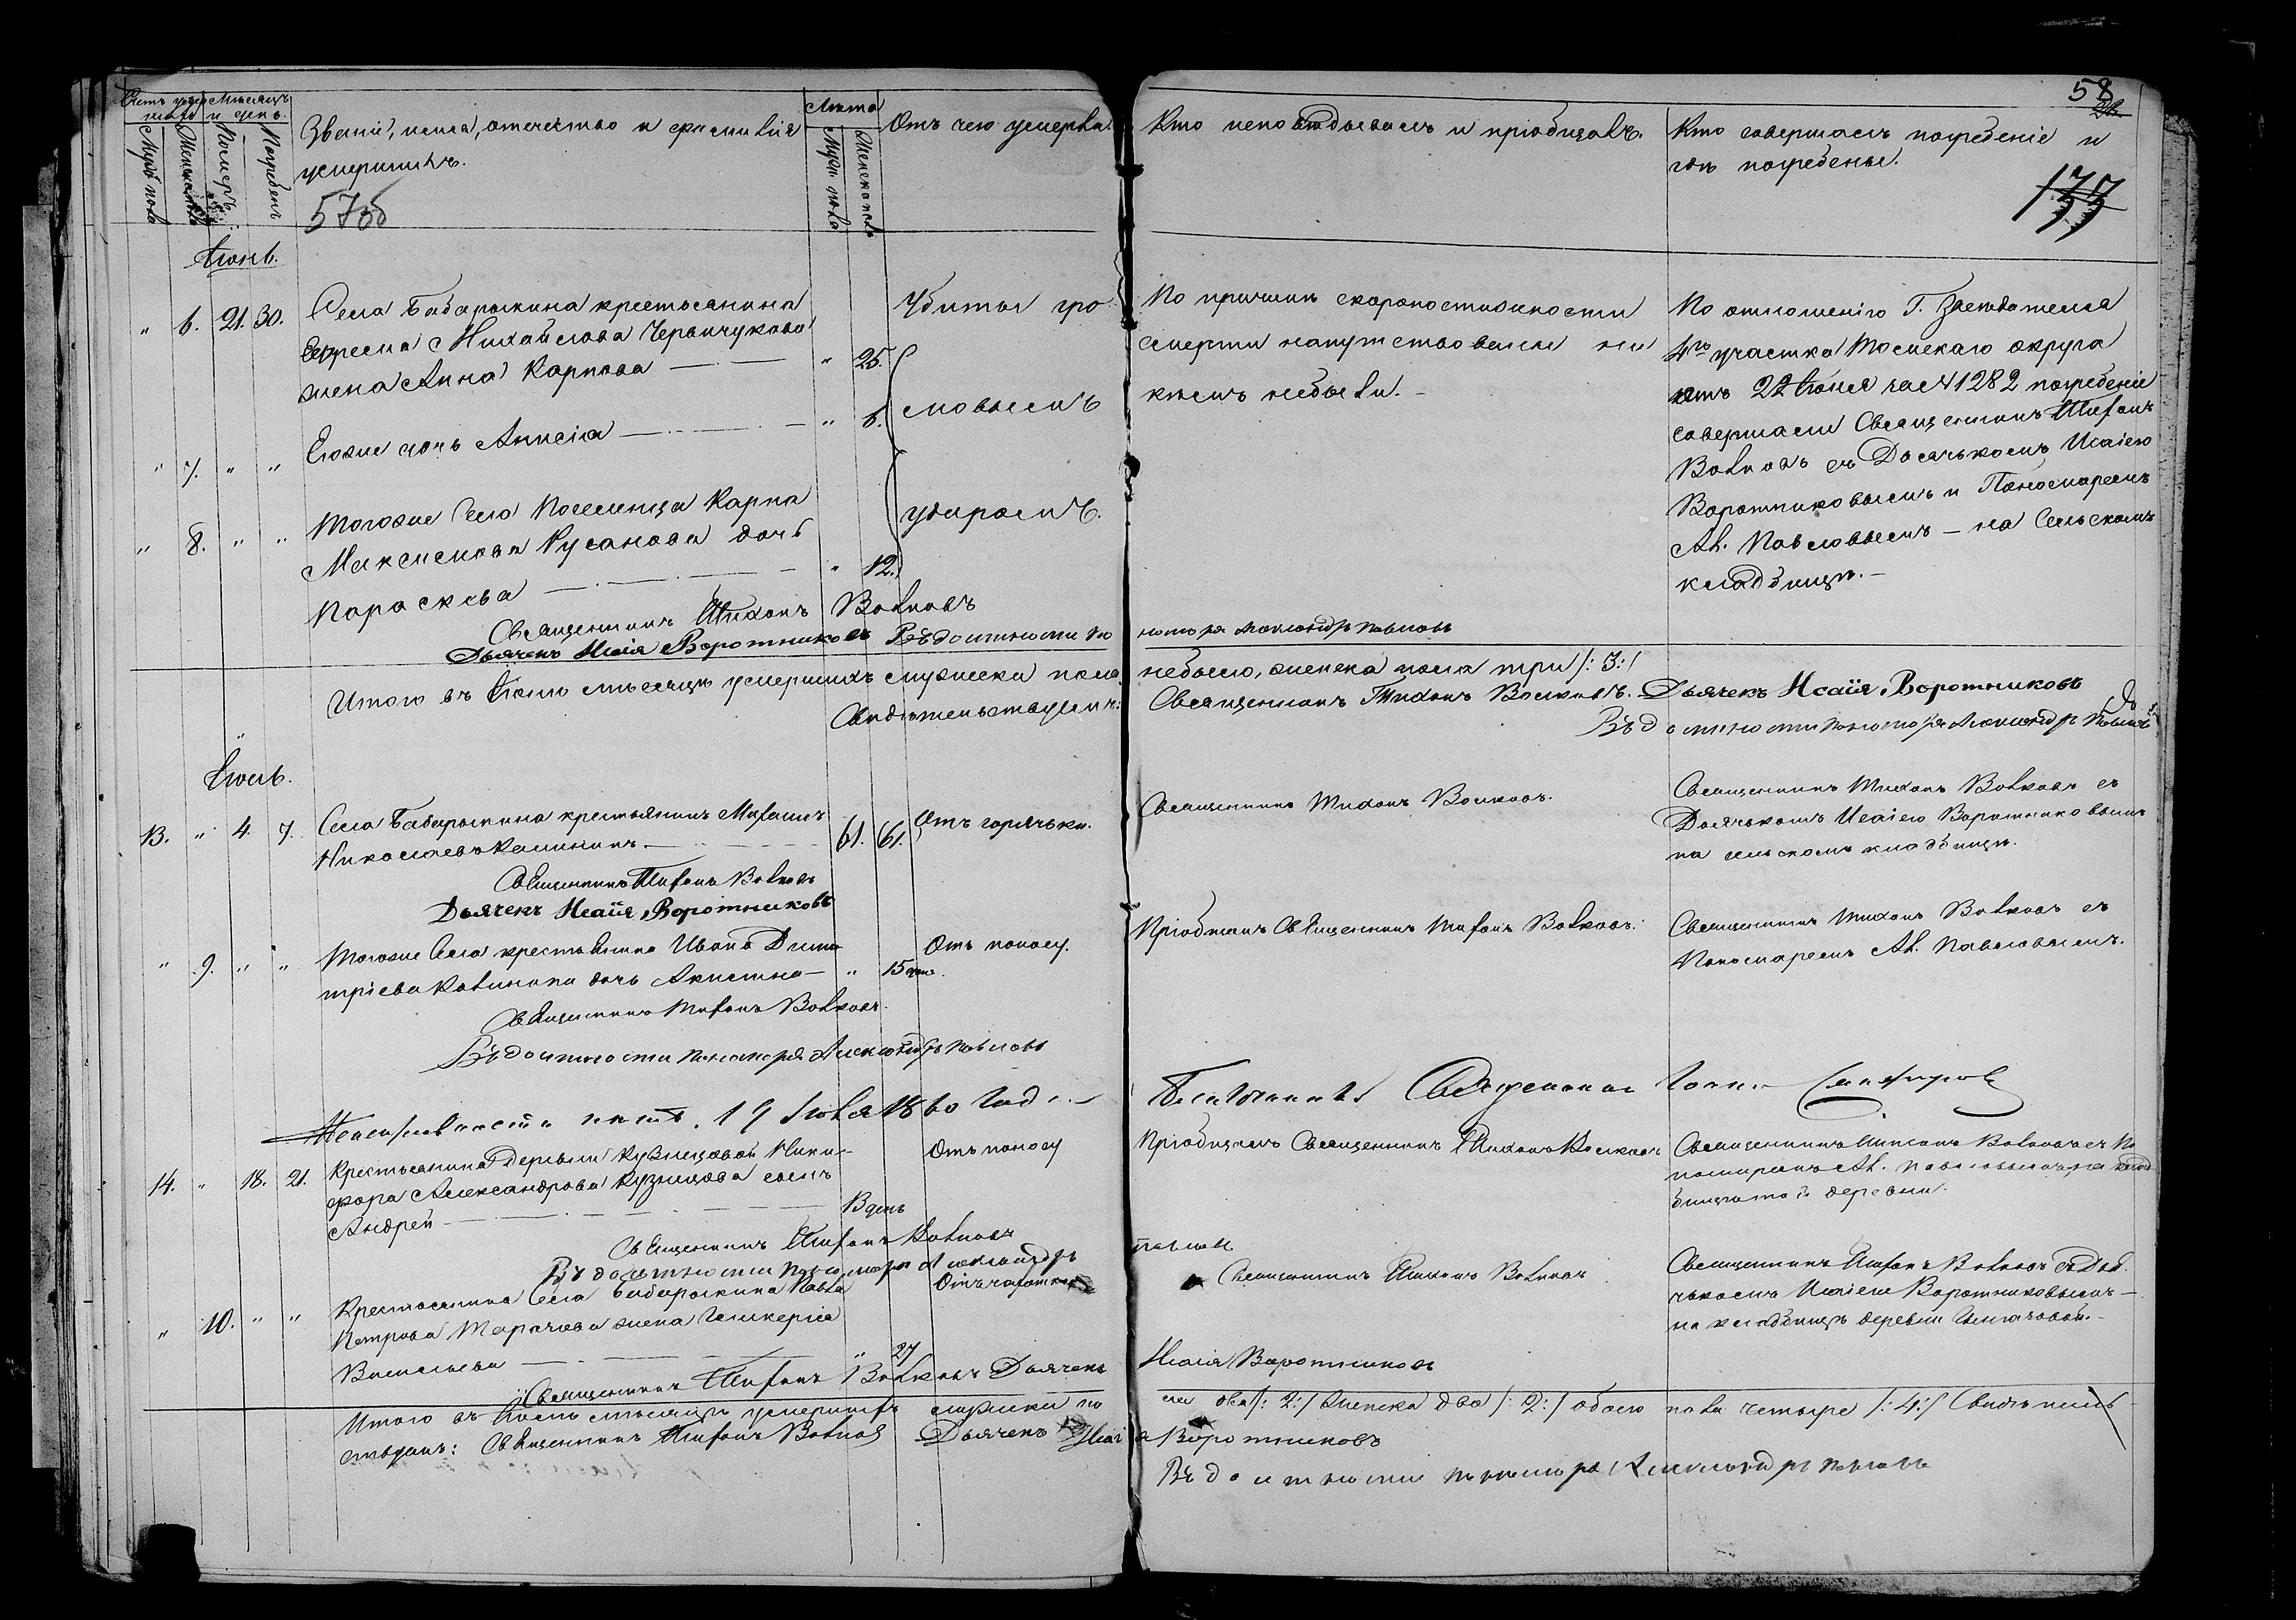 58
Счетъ умершихъ
Мѣсяцъ и день.
Мужс. пола
Женска пола
Померъ
Погребенъ
Званіе, имя, отечество и фамилія
умершихъ.
Лѣта
Мужс. пола
Женска пола
Отъ чего умерли.
Кто исповѣдывалъ и пріобщалъ.
Кто совершалъ погребеніе и
гдѣ погребены.
57об
177
Іюнь.
" 6. 21. 30. Села Бабарыкина крестьянина
Ефрема Михайлова Черьпчукова
жена Анна Карпова — " 25.
" 7. " " Егоже дочь Анисія — " 6.
" 8. " " Тогоже Села Поселенца Карпа
Максимова Русанова дочь
Параскева — " 12.
Убиты гро
мовымъ
ударомъ.
По причинѣ скоропостижности
смерти напутствованы ни
кѣмъ небыли. -
По отношенію Г. Засѣдателя
4го участка Томскаго округа
отъ 22 Іюня за № 1282 погребеніе
совершали Священникъ Тихонъ
Волковъ съ Дьячькомъ Исаіею
Воротниковымъ и Пономаремъ
Ал. Павловымъ — на Сельскомъ
кладбищѣ. —
Священникъ Тихонъ Волковъ
Дьячекъ Исаія Воротниковъ Въ должности по
номаря Александръ Павловъ
Итого въ Іюнѣ мѣсяцѣ умершихъ мужеска пола
небыло, женска пола три /: 3:/
Свидѣтельствуемъ:
Священникъ Тихонъ Волковъ. Дьячекъ Исаія Воротниковъ
Въ должности пономаря Александръ Павловъ
Іюль.
13. " 4. 7. Села Бабарыкина крестьянинъ Михаилъ
Николаевъ Калининъ. — 61. 61. Отъ горячьки.
Священникъ Тихонъ Волковъ.
Священникъ Тихонъ Волковъ съ
Дьячькомъ Исаіею Воротниковымъ
на сельскомъ кладбищѣ.
Священникъ Тихонъ Волковъ
Дьячекъ Исаія Воротниковъ
" 9. " " Тогоже Села крестьянина Ивана Дими
тріева Калинина дочь — " 15 Отъ поносу.
Пріобщалъ Священникъ Тихонъ Волковъ.
Священникъ Тихонъ Волковъ съ
Пономаремъ Ал. Павловымъ.
Священникъ Тихонъ Волковъ.
Въ должности пономаря Александръ Павловъ
19 Іюля 1860 года
Благочинный Священникъ
14. " 18. 21. Крестьянина Деревни Кузнецовой Ники-
фора Александрова Кузнецова сынъ
Андрей — 13 день Отъ поносу
Пріобщалъ Священникъ Тихонъ Волковъ
Священникъ Тихонъ Волковъ съ По
номаремъ Ал. Павловымъ, на клад
бищѣ той деревни.
Священникъ Тихонъ Волковъ
Въ должности пономаря Александръ
Павловъ
" 10. " " Крестьянина Села Бабарыкина Павла
Петрова жена Гликерія
Васильева — " 27 Отъ чахотки
Священникъ Тихонъ Волковъ
Священникъ Тихонъ Волковъ съ Дья
чькомъ Исаіею Воротниковымъ —
на кладбищѣ деревни
Священникъ Тихонъ Волковъ Дьячекъ
Исаія Воротниковъ
Итого въ Іюлѣ мѣсяцѣ умершихъ мужска по
ла два /: 2:/ Женска два /: 2:/ обоего пола четыре /: 4:/ Свидѣтель
ствуемъ: Священникъ Тихонъ Волковъ Дьячекъ Исаі
я Воротниковъ
Въ должности пономаря Александръ Павловъ